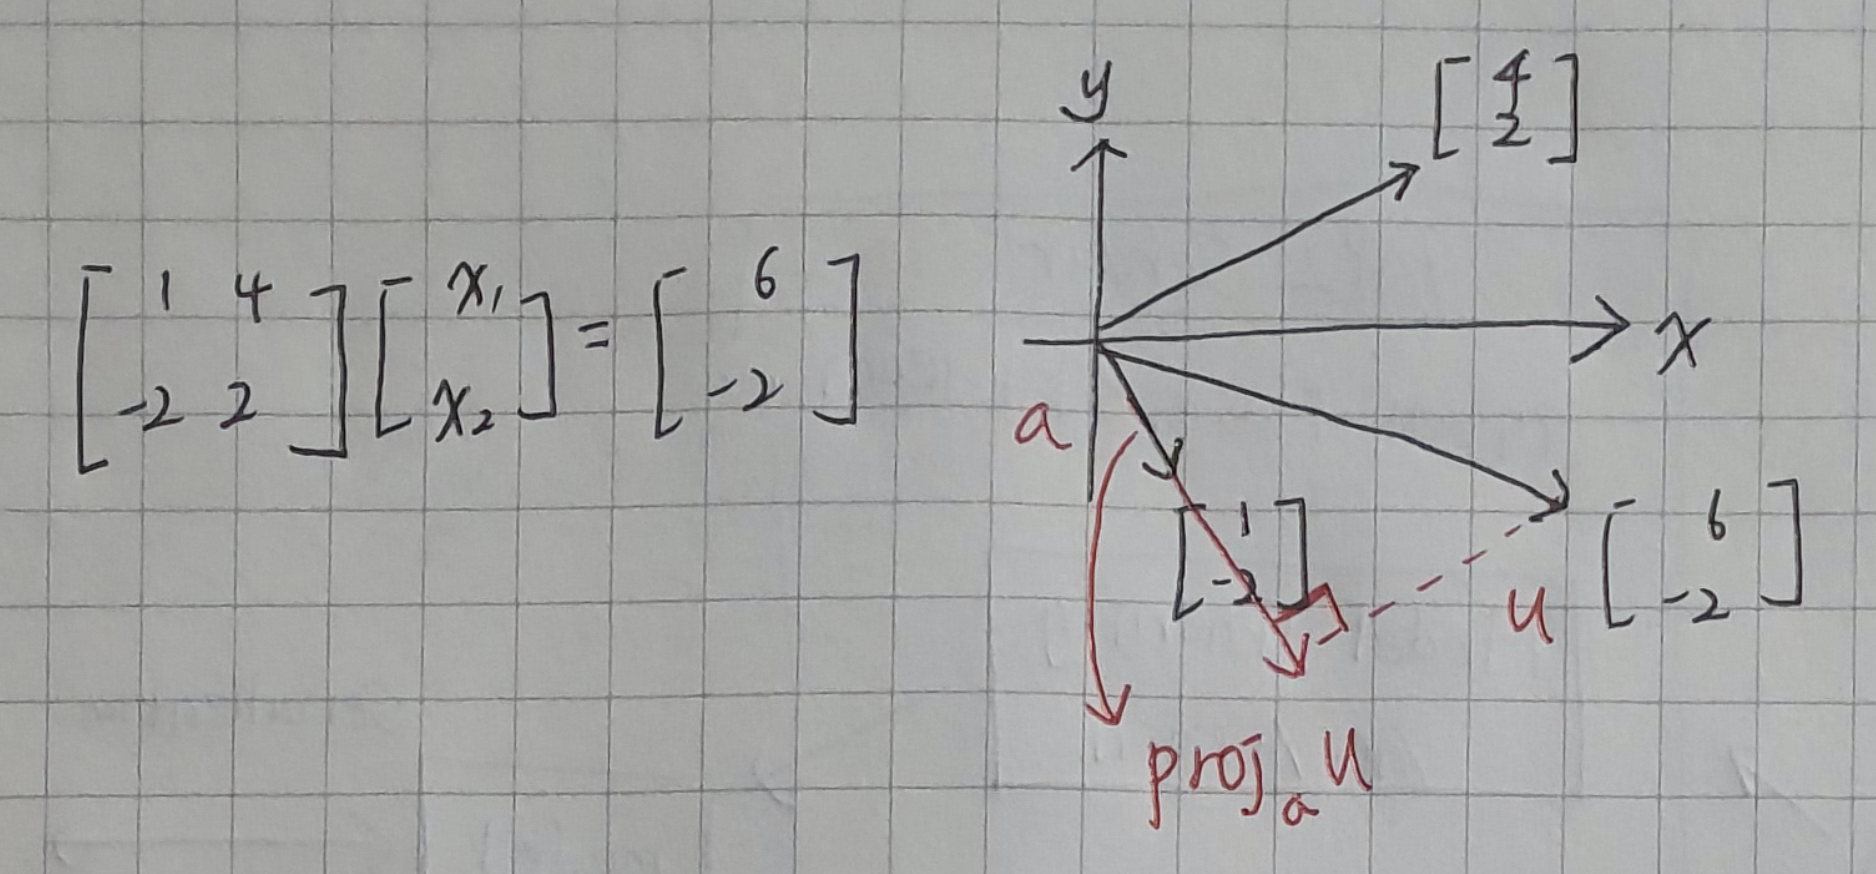 [ 1 4
-2 2 ] [ x₁
x₂ ] = [ 6
-2 ]
y
[ 4
2 ]
x
a
[ 1
-2 ]
u
[ 6
-2 ]
projₐ u